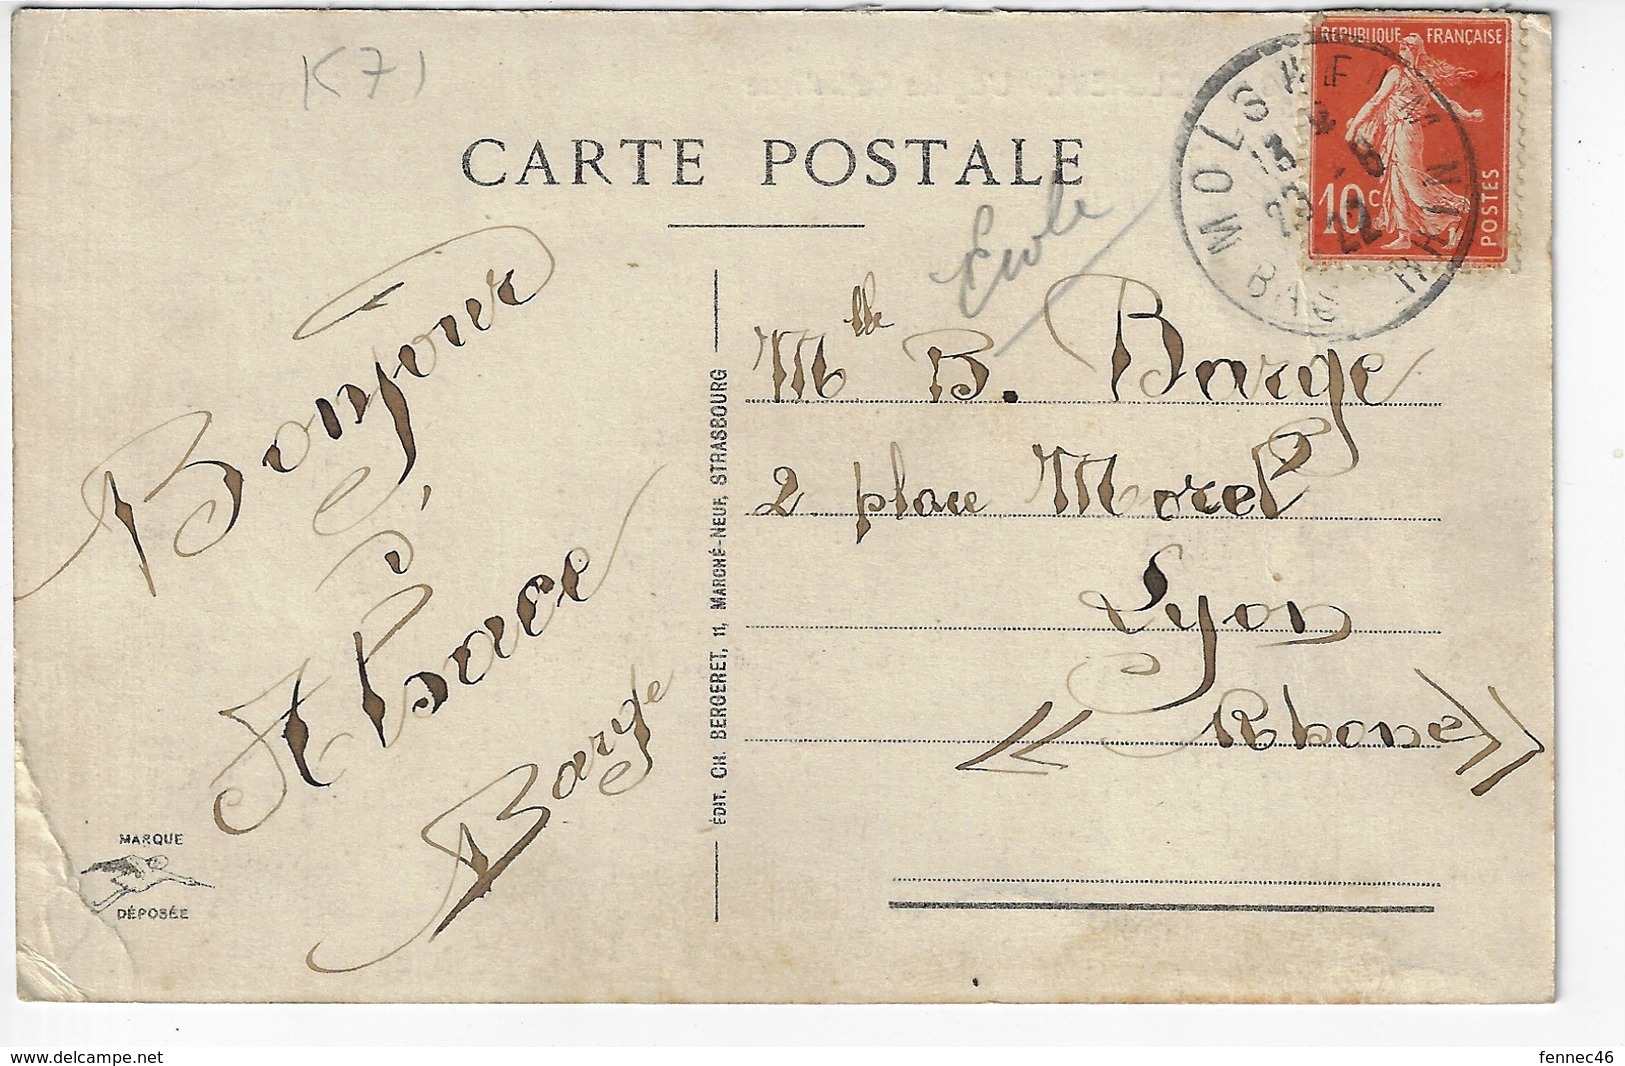 K71
CARTE POSTALE
REPUBLIQUE FRANÇAISE
10c
POSTES
MOLSHEIM
BAS RHIN
22
Ecole
Bonjour
d'
Alsace
Barge
MARQUE
DÉPOSÉE
ÉDIT. CH. BERGERET, 11, MARCHÉ-NEUF, STRASBOURG
Mlle B. Barge
2 place Morel
Lyon
« Rhône »
www.delcampe.net
fennec46